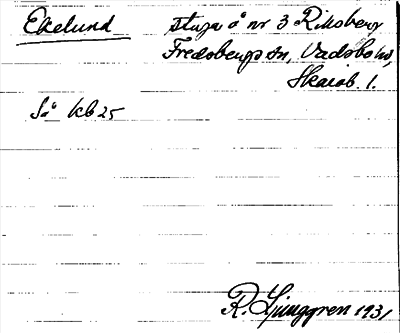 Ekelund stuga å nr 3 Riksberg
Fredsbergs sn, Vadsbo hd,
Skarab. l.
Så kb 25
R. Ljunggren 1931